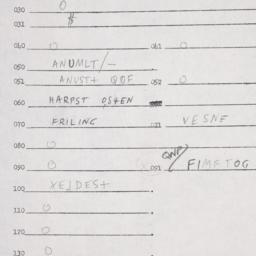 030 0
031 $
040 0 041 0
050 ANUMLT/-
051 ANUST+ QOF 052 0
060 HARPST OSTEN
070 FRILING 071 VESNE
080 0
090 0 091 QNP/ FIMFTOG
100 XEJDEST
110 0
120 0
130 0